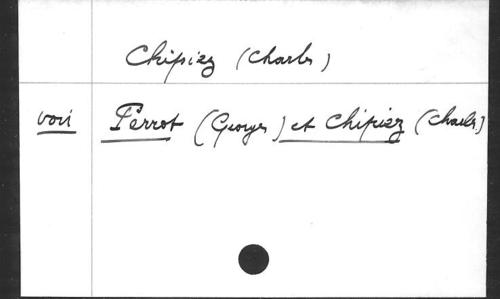 Chipiez (Charles)
voir Perrot (Georges) et Chipiez (Charles)